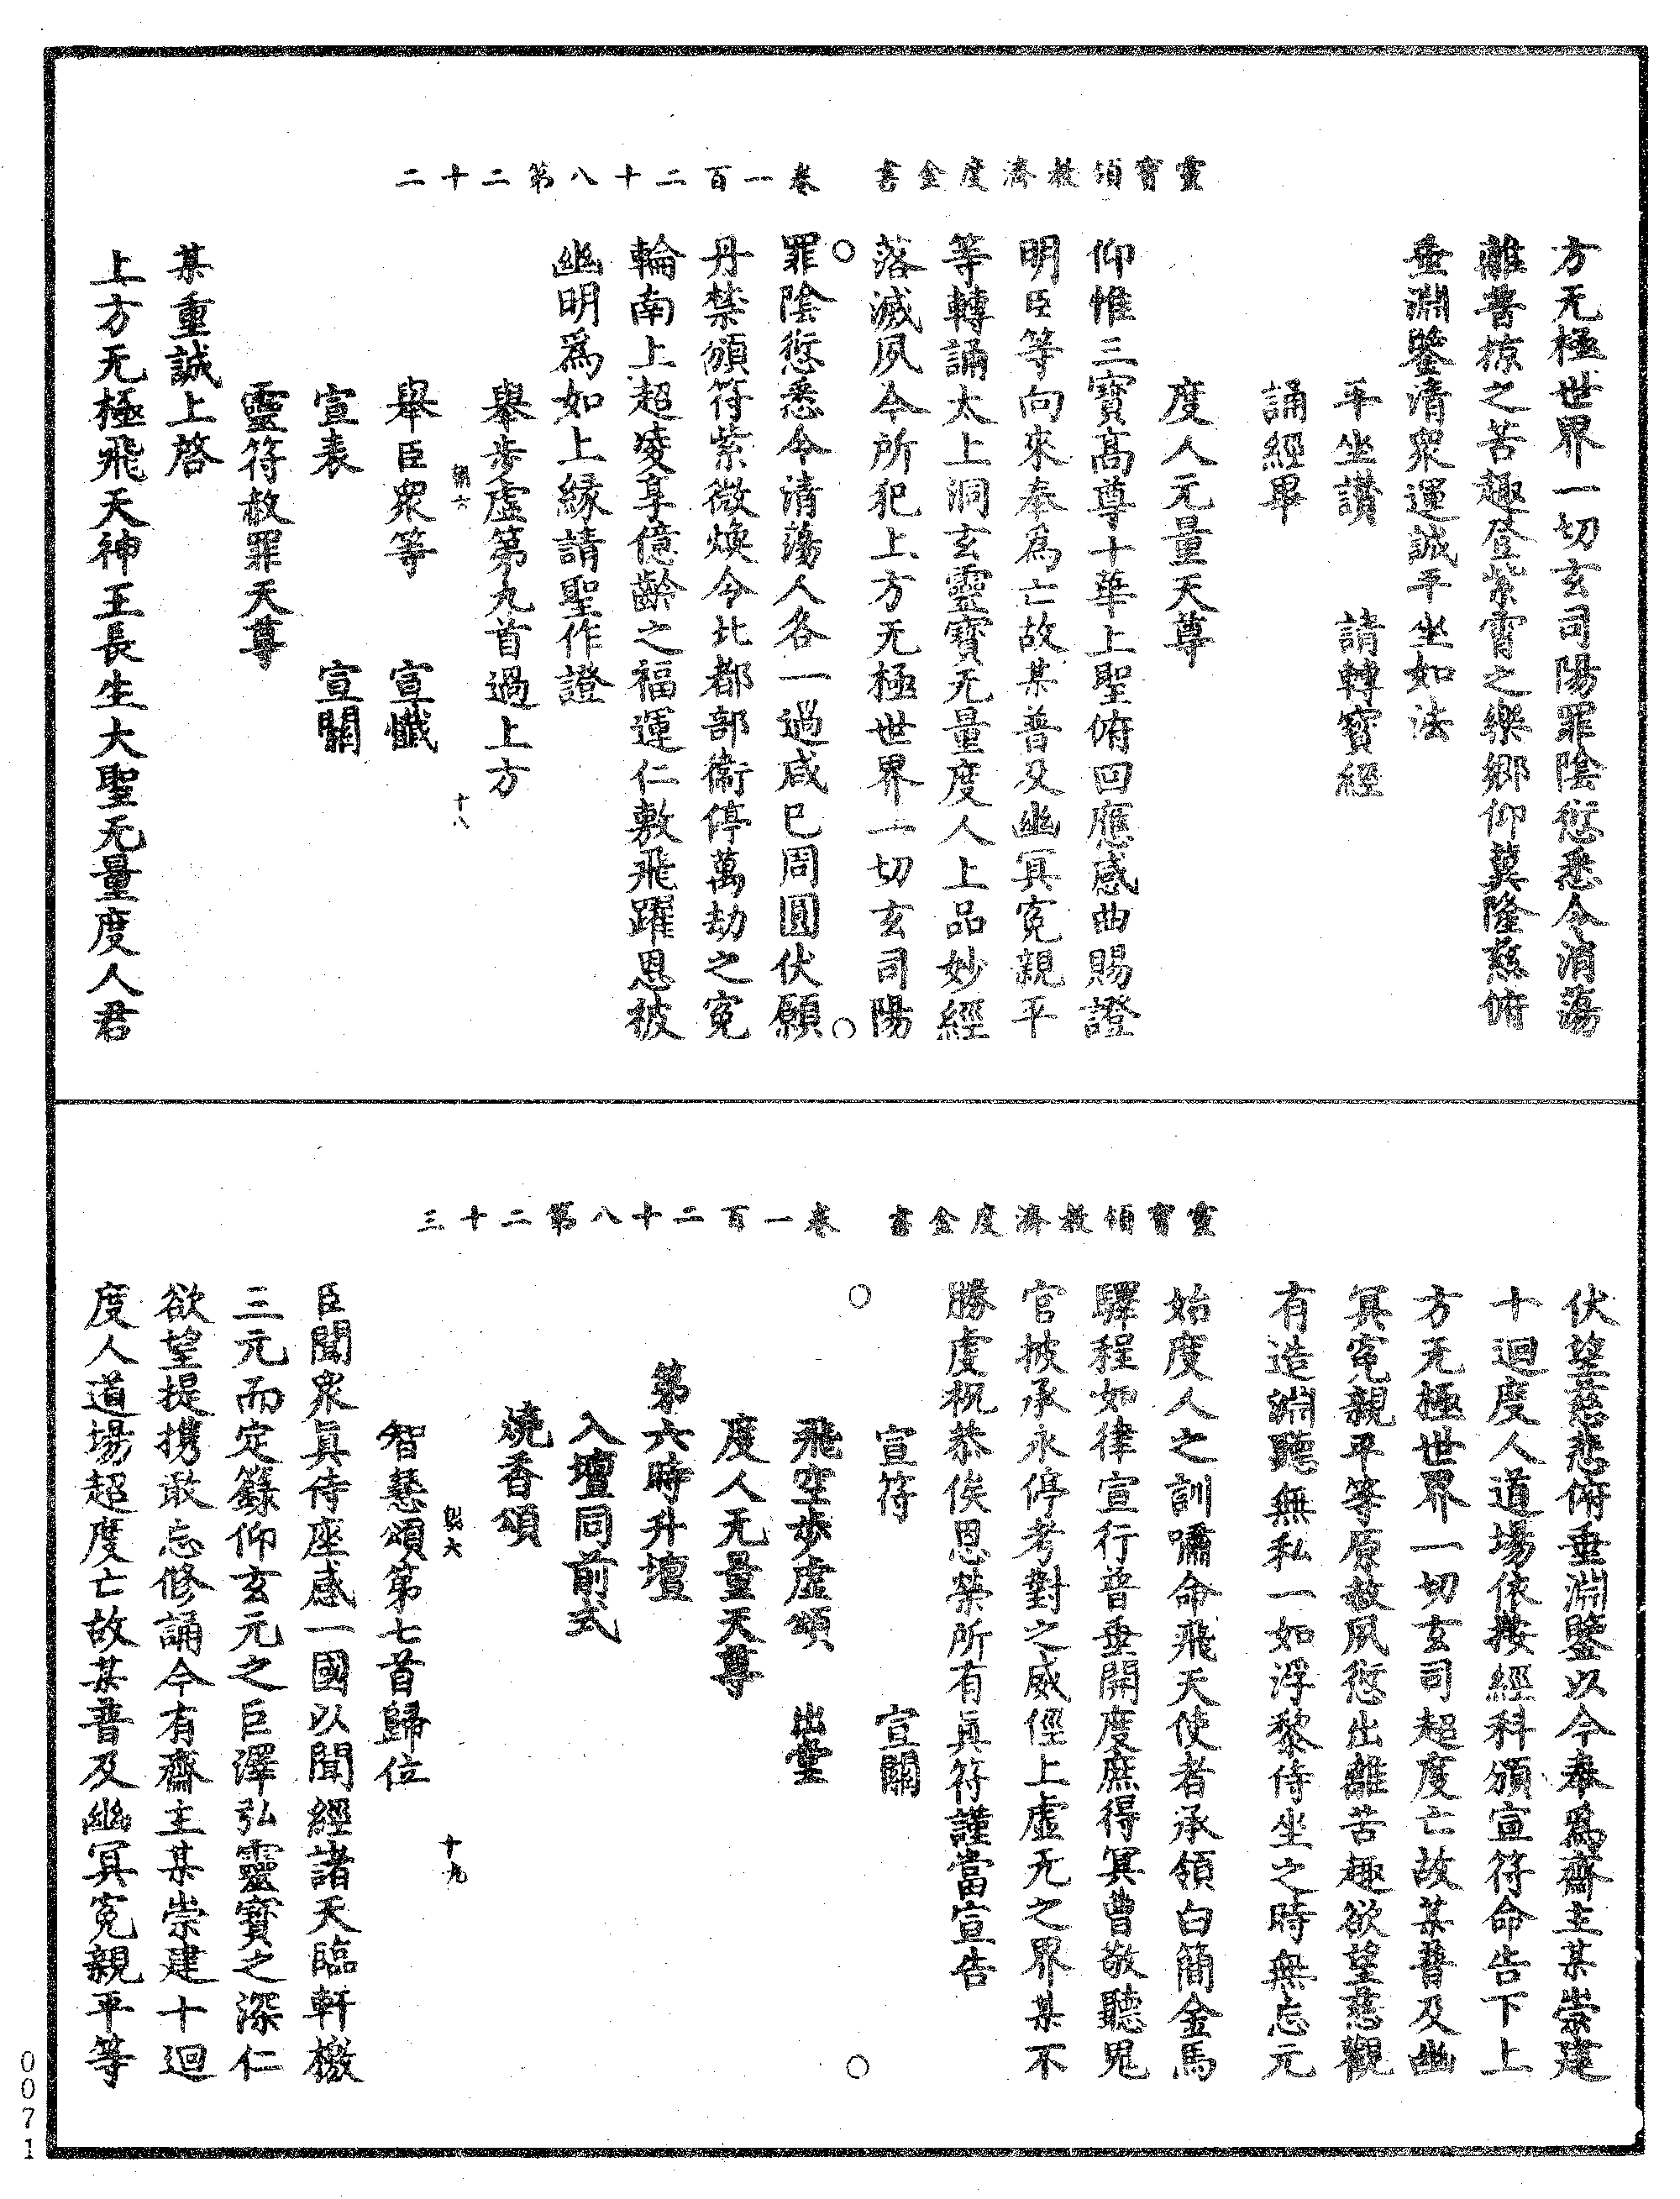 靈寶領教濟度金書　卷一百二十八第二十二
方无極世界一切玄司陽罪陰愆悉令消蕩
離苦掠之苦趣登紫霄之樂鄉仰冀隆慈俯
垂淵鑒清衆運誠平坐如法
平坐讚　請轉寶經
誦經畢
度人元量天尊
仰惟三寶高尊十華上聖俯回應感曲賜證
明臣等向來奉爲亡故某普及幽冥寃親平
等轉誦太上洞玄靈寶无量度人上品妙經
落滅夙今所犯上方无極世界一切玄司陽
罪陰愆悉令清蕩人各一過咸已周圓伏願
丹禁頒符紫微煥令北都部衞停萬劫之寃
輪南上超凌享億齡之福運仁敷飛躍恩被
幽明爲如上緣請聖作證
舉步虛第九首過上方
十八
舉臣衆等　宣懺
宣表　宣關
靈符赦罪天尊
某重誠上啓
上方无極飛天神王長生大聖无量度人君
靈寶領教濟度金書　卷一百二十八第二十三
伏望慈悲俯垂淵鑒以今奉爲齋主某崇建
十迴度人道場依按經科頒宣符命告下上
方无極世界一切玄司超度亡故某普及幽
冥寃親平等原赦夙愆出離苦趣欲望慈觀
有造淵聽無私一如浮黎侍坐之時無忘元
始度人之訓嘯命飛天使者承領白簡金馬
驛程如律宣行普垂開度庶得冥曹敬聽鬼
官披承永停考對之威俓上虛无之界某不
勝虔祝恭俟恩榮所有眞符謹當宣告
宣符　宣關
飛空步虛頌　出堂
度人无量天尊
第六時升壇
入壇同前式
燒香頌
十九
智慧頌第七首歸位
臣聞衆眞侍座感一國以聞經諸天臨軒檄
三元而定籙仰玄元之巨澤弘靈寶之深仁
欲望提携敢忘修誦今有齋主某崇建十迴
度人道場超度亡故某普及幽冥寃親平等
0071